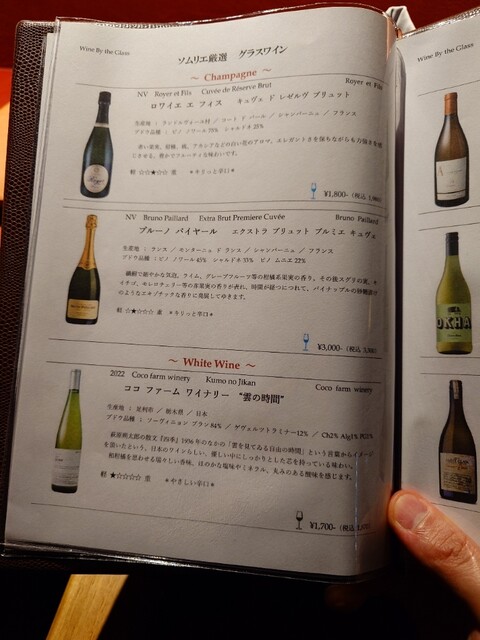 Wine By the Glass
ソムリエ厳選 グラスワイン
～ Champagne ～
NV Royer et Fils Cuvée de Réserve Brut Royer et Fils
ロワイエ エ フィス キュヴェ ド レゼルヴ ブリュット
生産地 ： ランドルヴィール村 ／ コート ド バール ／ シャンパーニュ ／ フランス
ブドウ品種 ： ピノ ノワール 75% シャルドネ 25%
軽 ☆☆★☆☆ 重 ＊キリっと辛口＊
¥1,800-（税込
NV Bruno Paillard Extra Brut Premiere Cuvée Bruno Paillard
ブルーノ パイヤール エクストラ ブリュット プルミエ キュヴェ
生産地 ： ランス ／ モンターニュ ド ランス ／ シャンパーニュ ／ フランス
ブドウ品種 ： ピノ ノワール 45% シャルドネ 33% ピノ ムニエ 22%
繊細で軽やかな気泡。ライム、グレープフルーツ等の柑橘系果実の香り。その後スグリの実、
イチゴ、モレロチェリー等の赤果実の香りが表れ、時間が経つにつれて、パイナップルの砂糖漬け
のようなエキゾチックな香りに発展してゆきます。
軽 ☆★☆☆☆ 重 ＊キリっと辛口＊
¥3,000-（税込
～ White Wine ～
2022 Coco farm winery Kumo no Jikan Coco farm winery
ココ ファーム ワイナリー “雲の時間”
生産地 ： 足利市 ／ 栃木県 ／ 日本
ブドウ品種 ： ソーヴィニョン ブラン 84% ／ ゲヴェルツトラミナー12% ／ Ch2% Alg1% PG1%
萩原朔太郎の散文『四季』1936 年のなかの「雲を見てゐる自由の時間」という言葉からイメージ
を頂いたという、日本のワインらしい、優しい中にしっかりとした芯を持っている味わい。
軽 ★☆☆☆☆ 重 ＊やさしい辛口＊
¥1,700-（税込
Wine By the Glass